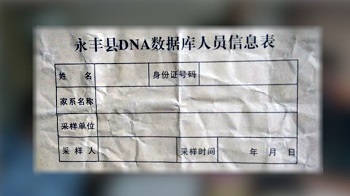 永丰县DNA数据库人员信息表
姓 名 身份证号码
家系名称
采样单位
采 样 人 采样时间 年 月 日